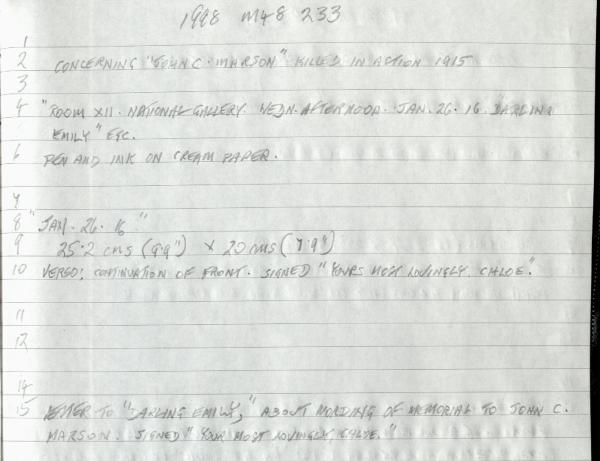 1998 M+8 233
1
2 CONCERNING "JOHN C. MARSON" KILLED IN ACTION 1915
3
4 "ROOM XII. NATIONAL GALLERY. WEDN. AFTERNOON. JAN. 26. 16. DARLING
EMILY" ETC.
6 PEN AND INK ON CREAM PAPER.
7
8 "JAN. 26. 16"
9 25.2 cms (9.9") x 20 cms (7.9")
10 VERSO: CONTINUATION OF FRONT. SIGNED "YOURS MOST LOVINGLY. CHLOE."
11
12
14
15 LETTER TO "DARLING EMILY," ABOUT WORDING OF MEMORIAL TO JOHN C.
MARSON. SIGNED "YOUR MOST LOVINGLY, CHLOE."